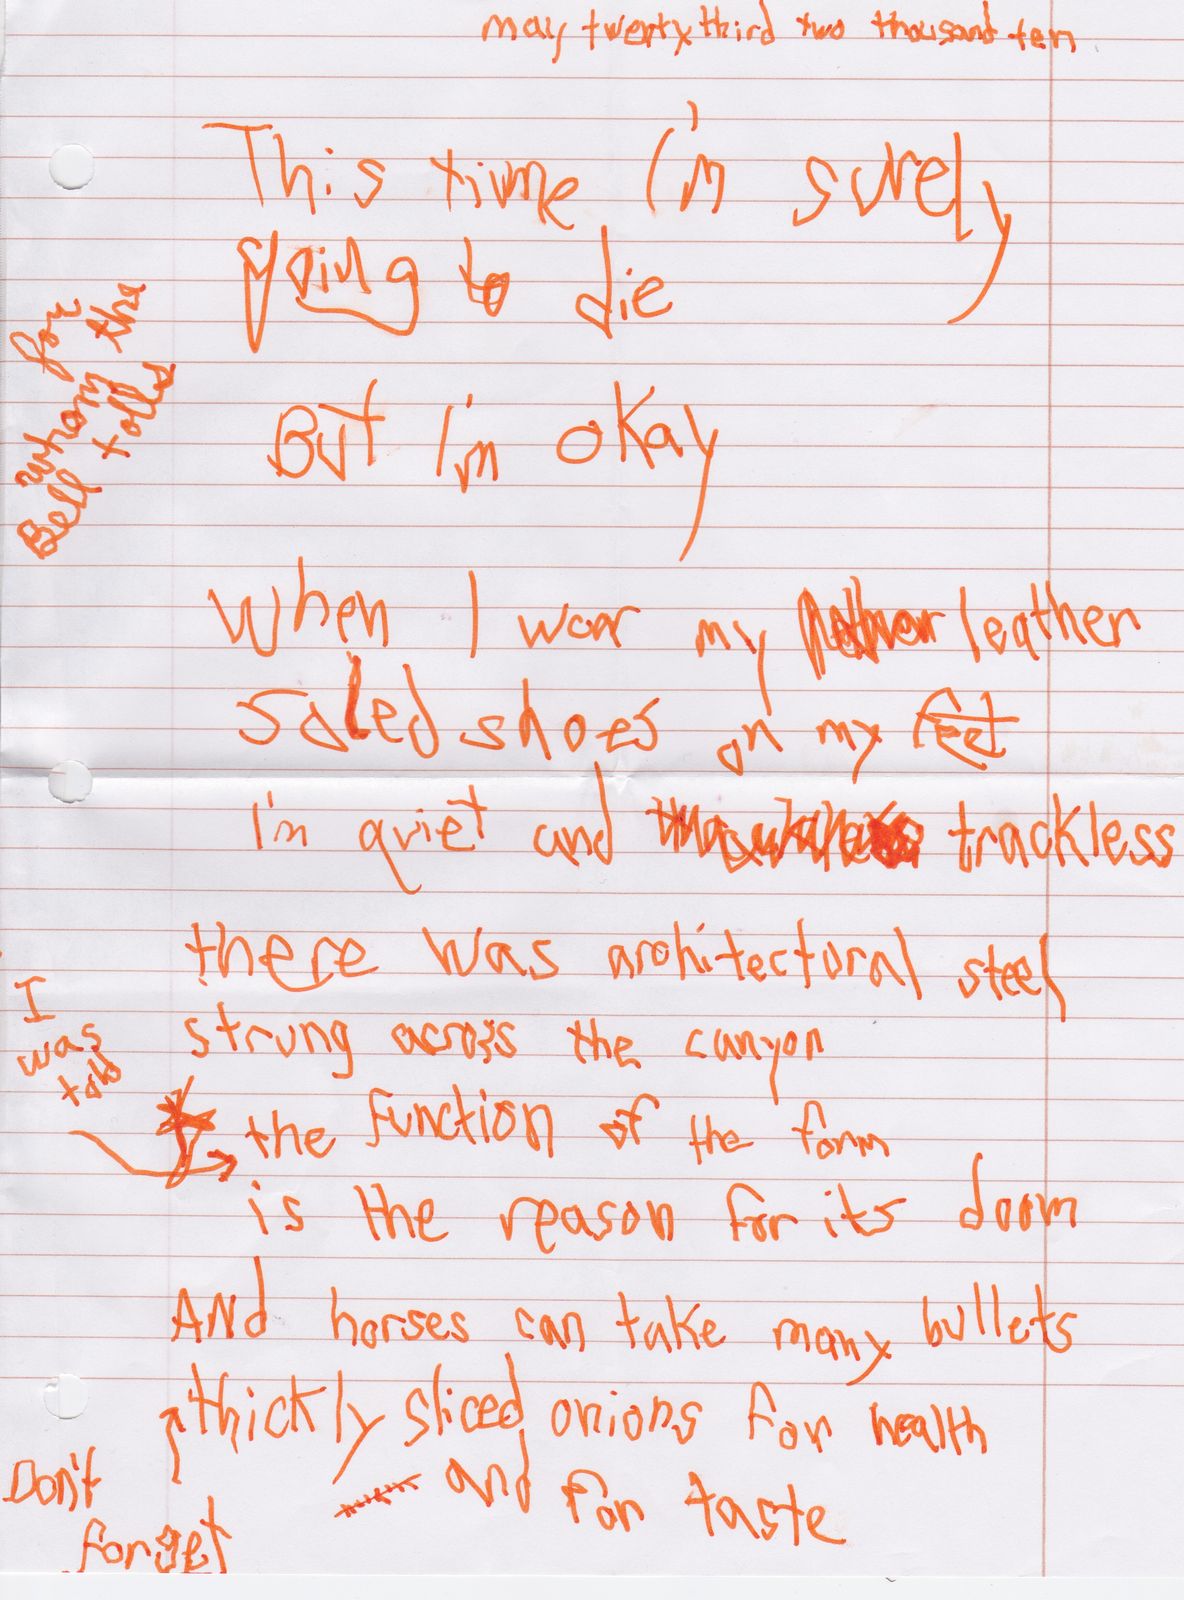 may twenty third two thousand ten
This time I'm surely
going to die
for
whom the
Bell tolls
But I'm okay
When I wear my leather
soled shoes on my feet
I'm quiet and trackless
there was architectural steel
strung across the canyon
I
was
told
the function of the form
is the reason for its doom
AND horses can take many bullets
Don't
forget
thickly sliced onions for health
and for taste